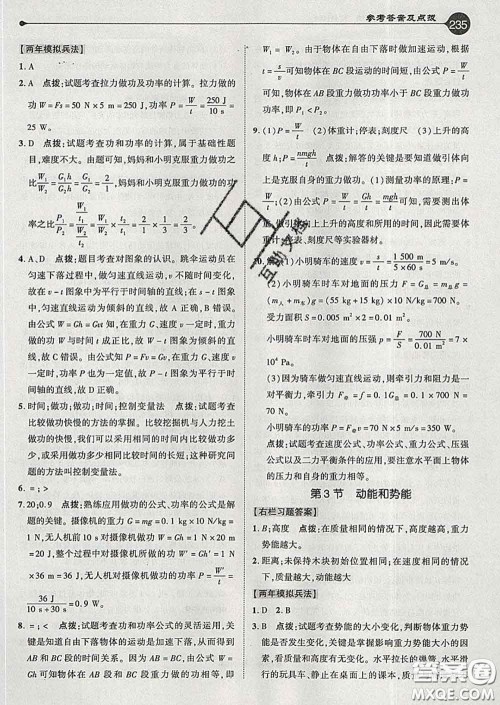 参考答案及点拨
235
【两年模拟兵法】
1. A
2. A 点拨：试题考查拉力做功及功率的计算。拉力做的
功 W = Fs = 50 N × 5 m = 250 J，功率 P = W/t = 250 J/10 s =
25 W。
3. D 点拨：试题考查功和功率的计算，属于基础性题
目，难度不大。由题可知，妈妈和小明克服重力做功之
比 W₁/W₂ = G₁h/G₂h = G₁/G₂ = 2/1，妈妈和小明克服重力做功的功
率之比 P₁/P₂ =
4. A、D 点拨：题目考查对图象的认识。跳伞运动员在
匀速下落过程中，做匀速直线运动，v 不随时间变化，
故在图象中为平行于时间轴的直线，而路程 s 与时间
成正比，故在图象中为倾斜的直线，故 A 正确，B 错误。
由公式 W = Gh = Gvt 知，在重力 G、速度 v 一定时，重力
做的功 W 与时间 t 成正比，故 W-t 图象为倾斜的直
线，故 C 错误。由公式 P = Fv = Gv，在重力 G、速度 v
一定时，功率 P 一定，因此 P-t 图象为平行于时间轴
的直线，故 D 正确。
5. 时间；做功；做功；时间；控制变量法 点拨：试题考查
比较做功快慢的方法。比较挖掘机与人力挖土做功
的快慢时，我们可以采用相同的时间内比较做功多
少，也可以采用做相同的功比较时间长短，这种研究
问题的方法叫控制变量法。
6. =；<
7. 20；0.9 点拨：熟练应用做功的公式、功率的公式是解
题的关键。摄像机的重力 G = mg = 0.1 kg × 10 N/kg =
1 N，无人机对摄像机做的功 W = Gh = 1 N × 20 m =
20 J，这个过程中无人机对摄像机所做的功 W' = Gh' = 1 N ×
36 m = 36 J，无人机对摄像机做功的功率 P = W'/t' =
36 J/10 s + 30 s = 0.9 W。
8. =；< 点拨：试题考查功和功率公式的灵活运用，关
键是知道自由下落物体的运动是加速下落，从而得到
AB 和 BC 段的时间关系。由题意可知，AB = BC，物体
在经过 AB 和 BC 段的过程中下落高度相同，由 W =
Gh 可知物体在 AB 段和 BC 段重力做功的相等，即
W₁ = W₂。由于物体在自由下落时做加速运动，根据
t = s/v 可知物体在 BC 段运动的时间短，由公式 P =
W/t 可知物体在 AB 段重力做功功率小于 BC 段重力
做功功率，即 P₁ < P₂。
9. (1) P = W/t (2) 体重计；停表；刻度尺 (3) 上升的高
度；h (4) P = nmgh/t 点拨：解答的关键是要知道做引体向
上是克服自身的重力做功。(1) 测量功率的原理：P =
W/t；(2) 由公式 P = W/t = Gh/t = mgh/t 可知，需要测出体
重、做引体向上上升的高度和所用的时间，因此需要体
重计、停表、刻度尺等实验仪器。
10. (1) 小明骑车的速度 v = s/t = 1 500 m/5 × 60 s = 5 m/s。
(2) 小明骑车时车对地面的压力 F = G总 = m总g =
(m人 + m车)g = (55 kg + 15 kg) × 10 N/kg = 700 N，
受力面积 S = 0.01 m²，
小明骑车时车对地面的压强 p = F/S = 700 N/0.01 m² = 7 ×
10⁴ Pa。
(3) 因为骑车做匀速直线运动，则牵引力和阻力是一
对平衡力，牵引力
小明骑车的功率
点拨：试题考查速度、压强、功率的计算，关键是公式
以及二力平衡条件的应用。要注意水平面上物体的
压力等于自身的重力。
第 3 节 动能和势能
【右栏习题答案】
1. B；高度 点拨：在质量相同的情况下，高度越大，重力
势能越大。
2. 距离；未保持木块初始位置相同；在质量相同的情况
下，速度越大，动能越大。
【两年模拟兵法】
1. D 2. B
3. A 点拨：试题考查重力势能的大小变化，判断物体重力势
能是否发生变化，关键是掌握影响重力势能大小的
因素，看质量和高度变化。水平拉长的弹簧、水平滑
行的玩具车、静止在桌面上的课本，质
互助文档
答案圈
MXQE.COM